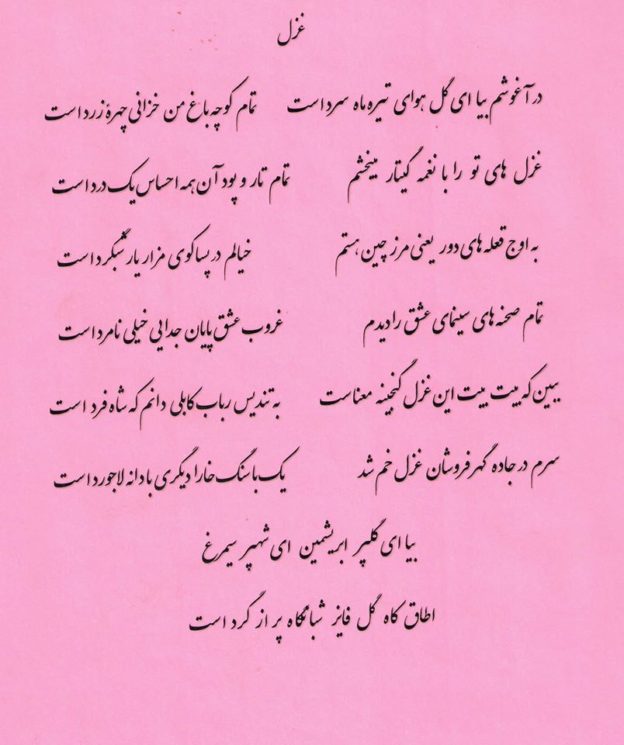 غزل
در آغوشم بیا ای گل هوای تیره ماه سرد است تمام کوچه باغ من خزانی چهرۀ زرد است
غزل های تو را با نغمه گیتار میخشم تمام تار و پود آن همه احساس یک درد است
به اوج قعله های دور یعنی مرز چین هستم خیالم در پساکوی مزار یار شبگرد است
تمام صحنه های سینمای عشق را دیدم غروب عشق پایان جدایی خیلی نامرد است
ببین که بیت بیت این غزل گنجینه معناست به تندیس رباب کابلی دانم که شاه فرد است
سرم در جاده گهرفروشان غزل خم شد یک با سنگ خارا دیگری با دانه لاجورد است
بیا ای گلپر ابریشمین ای شهپر سیمرغ
اطاق کاه گل فایز شبانگاه پر از گرد است